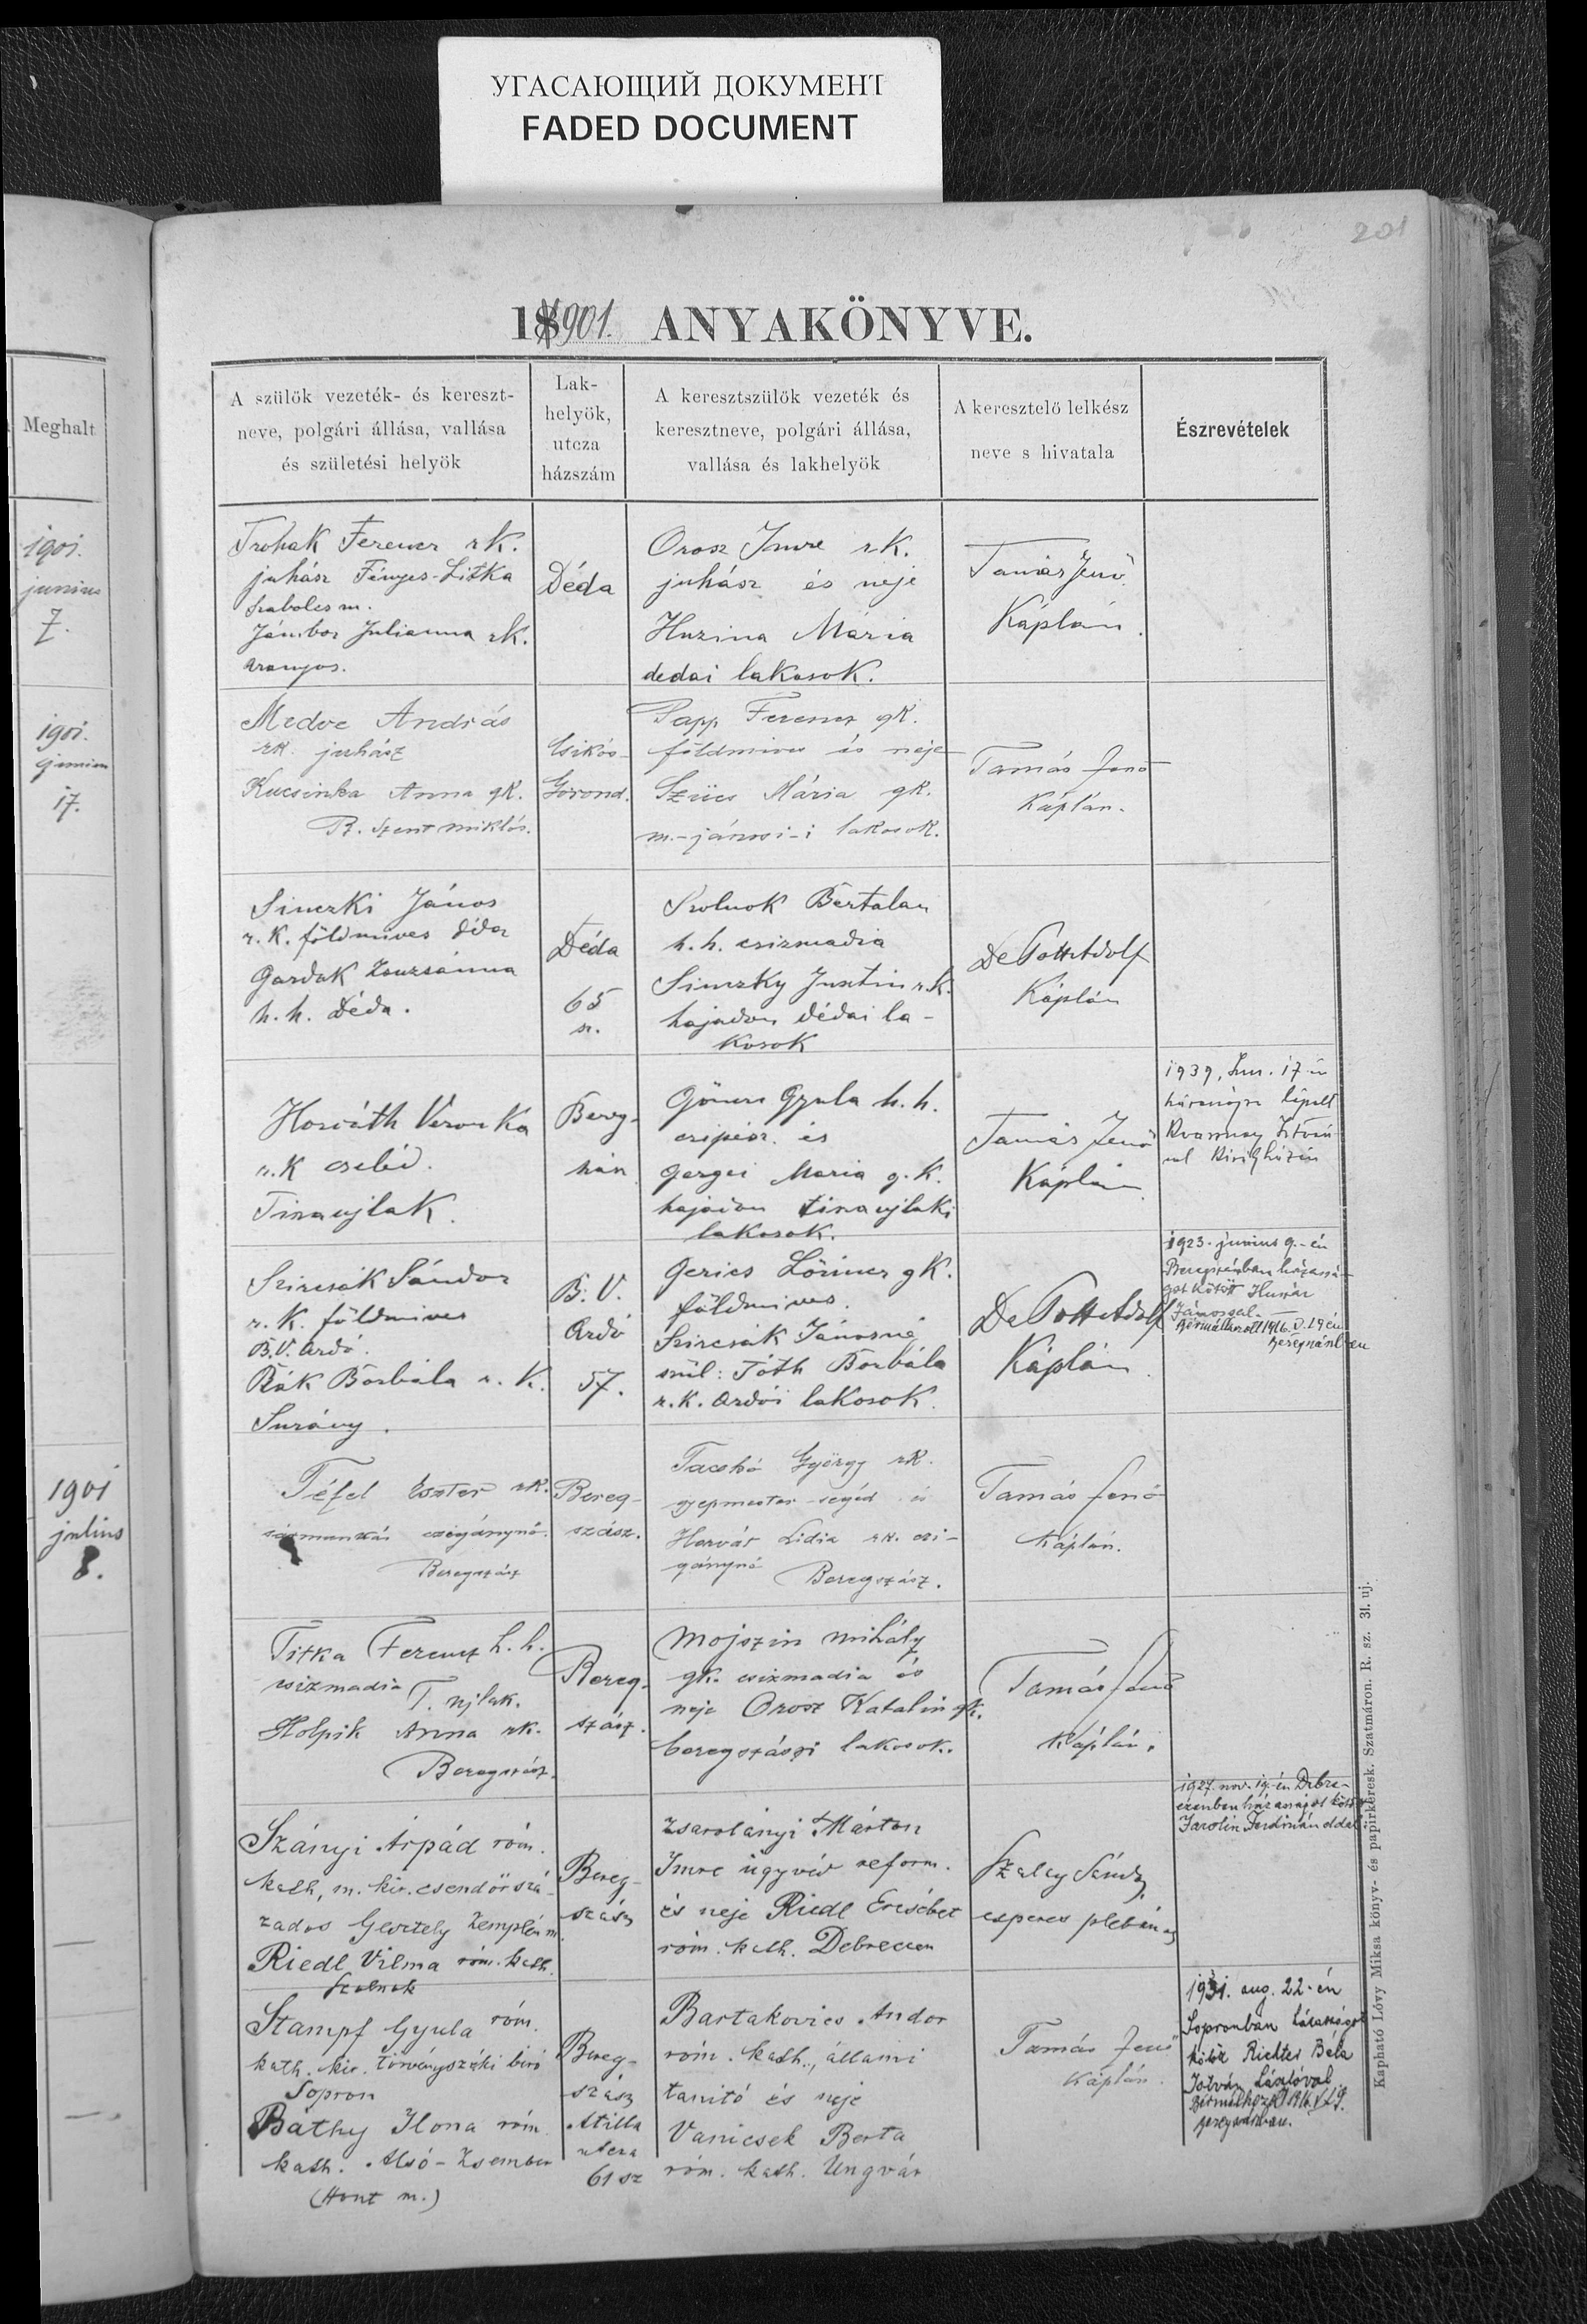 УГАСАЮЩИЙ ДОКУМЕНТ
FADED DOCUMENT
201
1901. ANYAKÖNYVE.
Meghalt
1901.
junius
7.
1901.
junius
17.
1901
julius
8.
A szülök vezeték- és kereszt-
neve, polgári állása, vallása
és születési helyök
Lak-
helyök,
utcza
házszám
A keresztszülök vezeték és
keresztneve, polgári állása,
vallása és lakhelyök
A keresztelö lelkész
neve s hivatala
Észrevételek
Trohak Ferencz rk.
juhász Fényes-Litka
Szabolcs m.
Jámbor Julianna rk.
Aranyos.
Déda
Orosz Imre r.k.
juhász és neje
Huzina Mária
dedai lakosok.
Tamás Jenő
Káplán.
Medve András
rk. juhász
Kucsinka Anna gk.
B. Szent miklós.
Csikós-
Gorond.
Papp Ferencz gk.
földmives és neje
Szücs Mária gk.
m.-jánosi-i lakosok.
Tamás Jenő
Káplán.
Sinczki János
r.k. földmives Déda
Gardak Zsuzsánna
h.h. Déda.
Déda
65
sz.
Szolnok Bertalan
h.h. csizmadia
Sinczky Jusztin r.k.
hajadon dédai la-
kosok
De Pott Adolf
Káplán
Horváth Veronka
r.k. cseléd.
Tiszaujlak.
Bereg-
szász
Gönczi Gyula h.h.
czipész és
Gergei Maria g.k.
hajadon tiszaujlaki
lakosok.
Tamás Jenő
Káplán
1939. Jun. 17-én
házasságra lépett
István-
nal Királyházán
Szircsák Sándor
r.k. földmives
B.V. Ardó.
Bák Borbála r.k.
Surány.
B.V.
Ardó
57.
Gerics Lörincz gk.
földmives.
Szircsák Jánosné
szül: Tóth Borbála
r.k. Ardói lakosok.
De Pott Adolf
Káplán.
1923. junius 9.-én
Beregszászban házassá-
got kötött Huszár
Jánossal.
Bérmálkozott 1916. V. 19 én
Beregszászban
Téfel Eszter rk.
czigánynő.
Beregszász
Bereg-
szász.
Taczkó György rk.
gyepmester-segéd és
Horvát Lidia rk. czi-
gánynő
Beregszász.
Tamás Jenő
Káplán.
Titka Ferencz h.h.
csizmadia T. ujlak.
Holpik Anna rk.
Beregszász.
Bereg-
szász.
Mojszin mihály
gk. csizmadia és
neje Orosz Katalin gk.
beregszászi lakosok.
Tamás Jenő
Káplán.
Szányi Árpád róm.
kath, m. kir. csendőr szá-
zados Gesztely Zemplén m.
Riedl Vilma róm. kath.
Szolnok
Bereg-
szász
Zsarolányi Márton
Imre ügyvéd reform.
és neje Riedl Erzsébet
róm. kath. Debreczen
Szalay Sándor
esperes plebános
1927. nov. 19-én Debre-
czenben házasságot kötött
Jarolin Ferdinánddal
Stampf Gyula róm.
kath. kir. törvényszéki biró
Sopron
Báthy Ilona róm.
kath. Alsó-Zsember
(Hont m.)
Bereg-
szász
Atilla
utcza
61 sz
Bartakovics Andor
róm. kath., állami
tanitó és neje
Vanicsek Berta
róm. kath. Ungvár
Tamás Jenő
Káplán.
1931. aug. 22-én
Sopronban házasságot
kötött Richter Béla
István Lászlóval
Bérmálkozott 1916. V. 19.
Beregszászban.
Kapható Lóvy Miksa könyv- és papirkeresk. Szatmáron. R. sz. 31. uj.